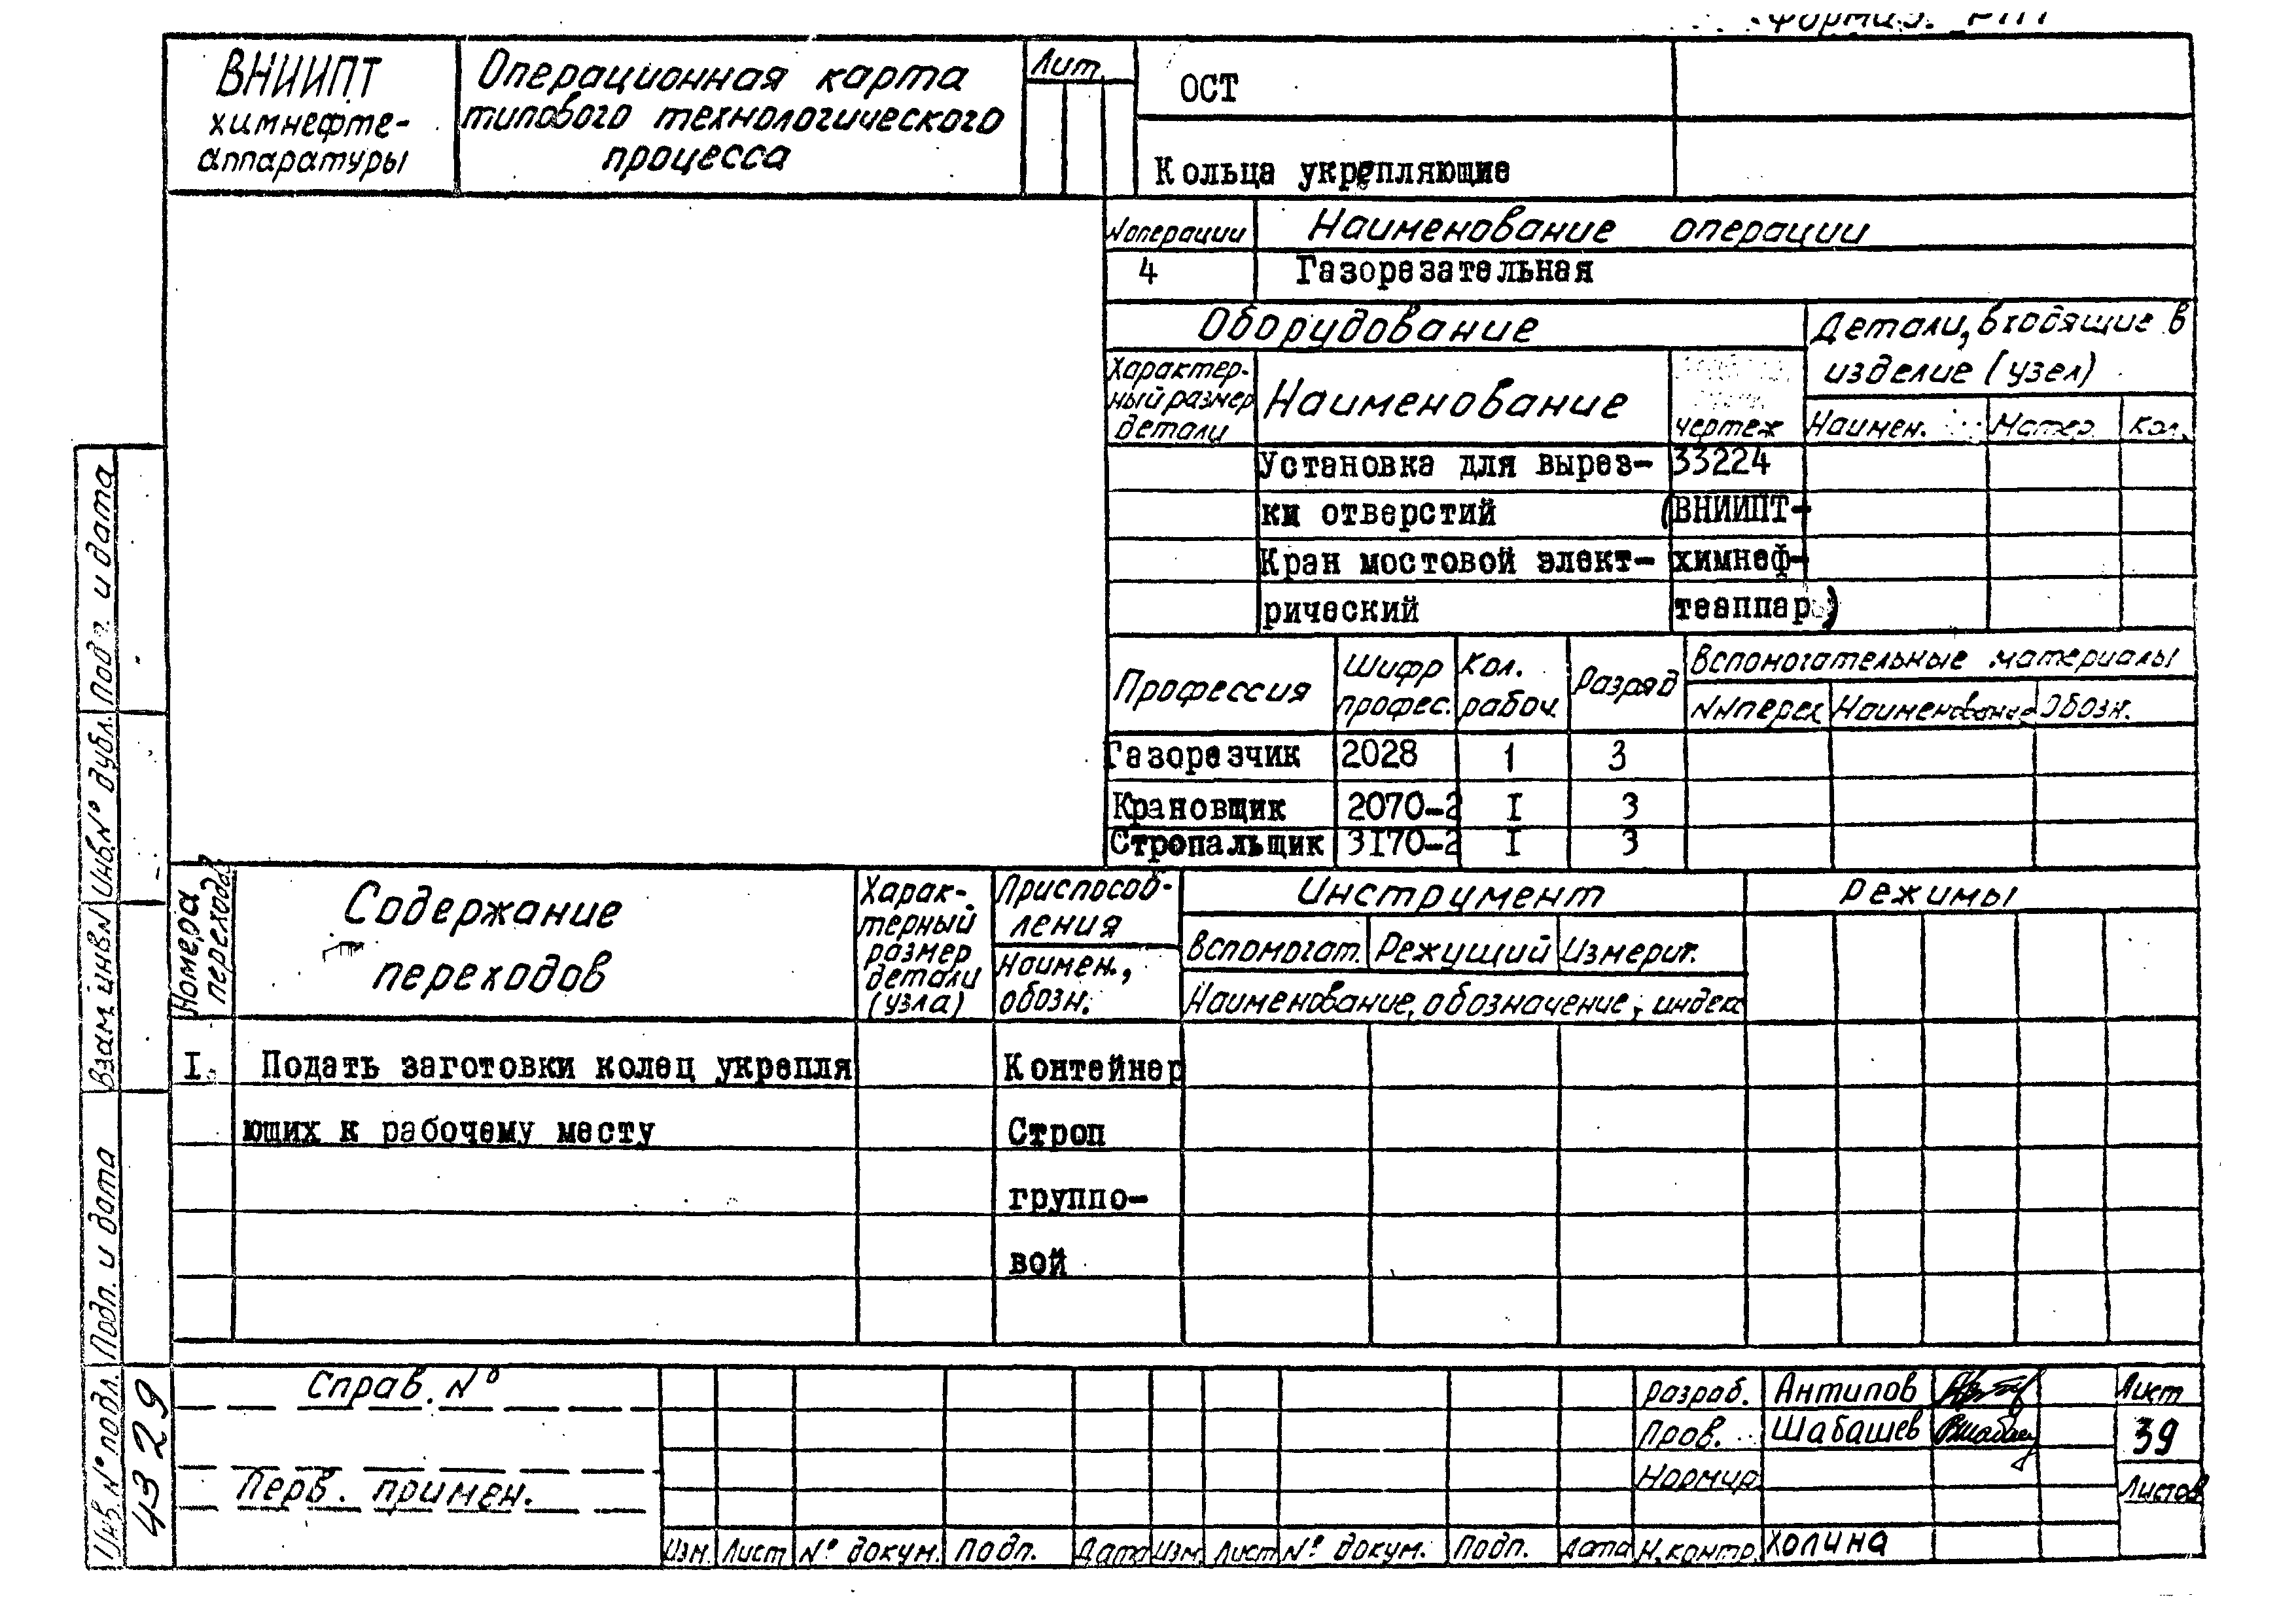 ВНИИПТ
химнефте-
аппаратуры
Операционная карта
типового технологического
процесса
Лит.
ОСТ
Кольца укрепляющие
N операции
Наименование операции
4
Газорезательная
Оборудование
Детали, входящие в
изделие (узел)
Характер-
ный размер
детали
Наименование
чертеж
Наимен.
Матер.
Кол.
Установка для вырез- 33224
ки отверстий (ВНИИПТ-
Кран мостовой элект- химнеф-
рический теаппар.)
Профессия
Шифр
профес.
Кол.
рабоч.
Разряд
Вспомогательные материалы
NN перех
Наименование
Обозн.
Газорезчик 2028 1 3
Крановщик 2070-2 I 3
Стропальщик 3170-2 I 3
Номера
переходов
Содержание
переходов
Харак-
терный
размер
детали
(узла)
Приспособ-
ления
Наимен.,
обозн.
Инструмент
Вспомогат.
Режущий
Измерит.
Наименование, обозначение, индекс
Режимы
I. Подать заготовки колец укрепля Контейнер
ющих к рабочему месту Строп
группо-
вой
Подп. и дата
Инв. N° дубл.
Взам. инв. N
Подп. и дата
Инв. N° подл.
4329
Справ. N°
Перв. примен.
Изм. Лист N° докум. Подп. Дата Изм. Лист N° докум. Подп. Дата
Разраб. Антипов
Пров. Шабашев
Нормир.
Н.контр. Холина
Лист
39
Листов